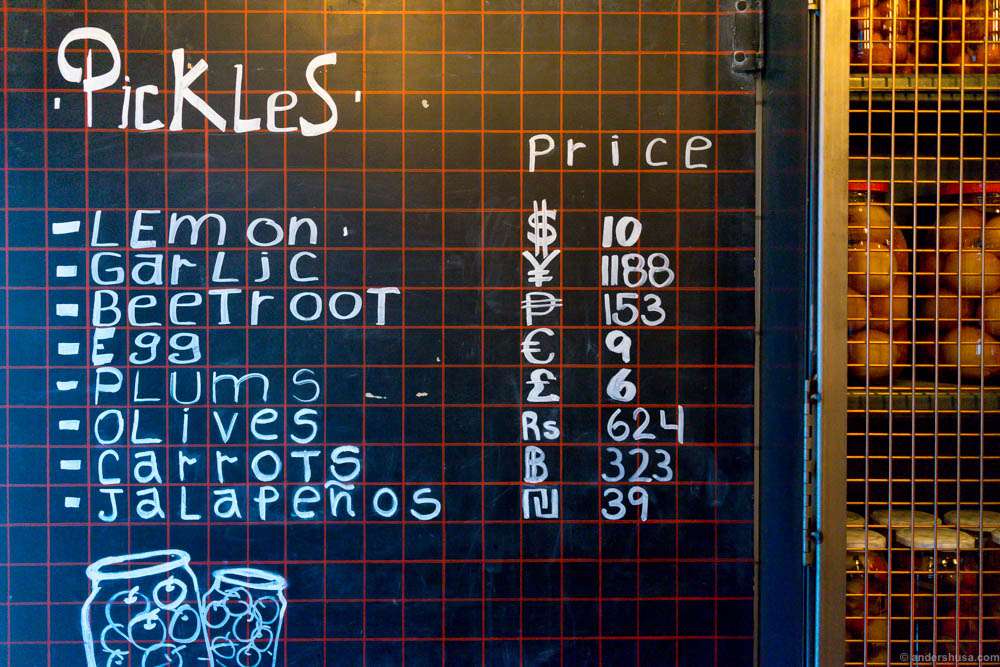 PickLes
Price
- LEmon $ 10
- GarLic ¥ 1188
- BeeTrooT ₱ 153
- Egg € 9
- PLUms £ 6
- OLives Rs 624
- CarroTS ฿ 323
- JaLaPeños ₪ 39
© andershusa.com